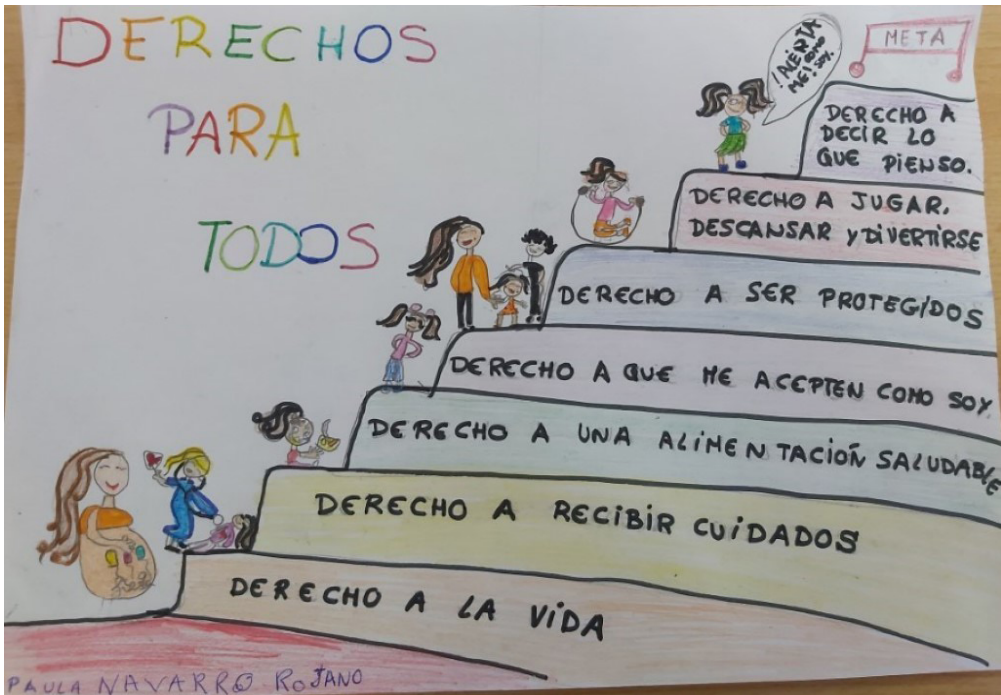 DERECHOS
PARA
TODOS
¡ACEPTA
ME! COMO
SOY.
META
DERECHO A
DECIR LO
QUE PIENSO.
DERECHO A JUGAR,
DESCANSAR y DIVERTIRSE
DERECHO A SER PROTEGIDOS
DERECHO A QUE ME ACEPTEN COMO SOY.
DERECHO A UNA ALIMENTACIÓN SALUDABLE
DERECHO A RECIBIR CUIDADOS
DERECHO A LA VIDA
PAULA NAVARRO ROJANO